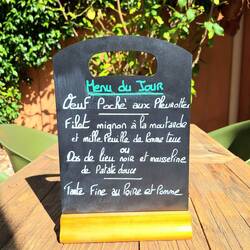 Menu du Jour
Oeuf Poché aux Pleurottes
Filet mignon à la moutarde
et mille feuille de pomme terre
ou
Dos de lieu noir et mousseline
de Patate douce
Tarte Fine au Poire et Pomme